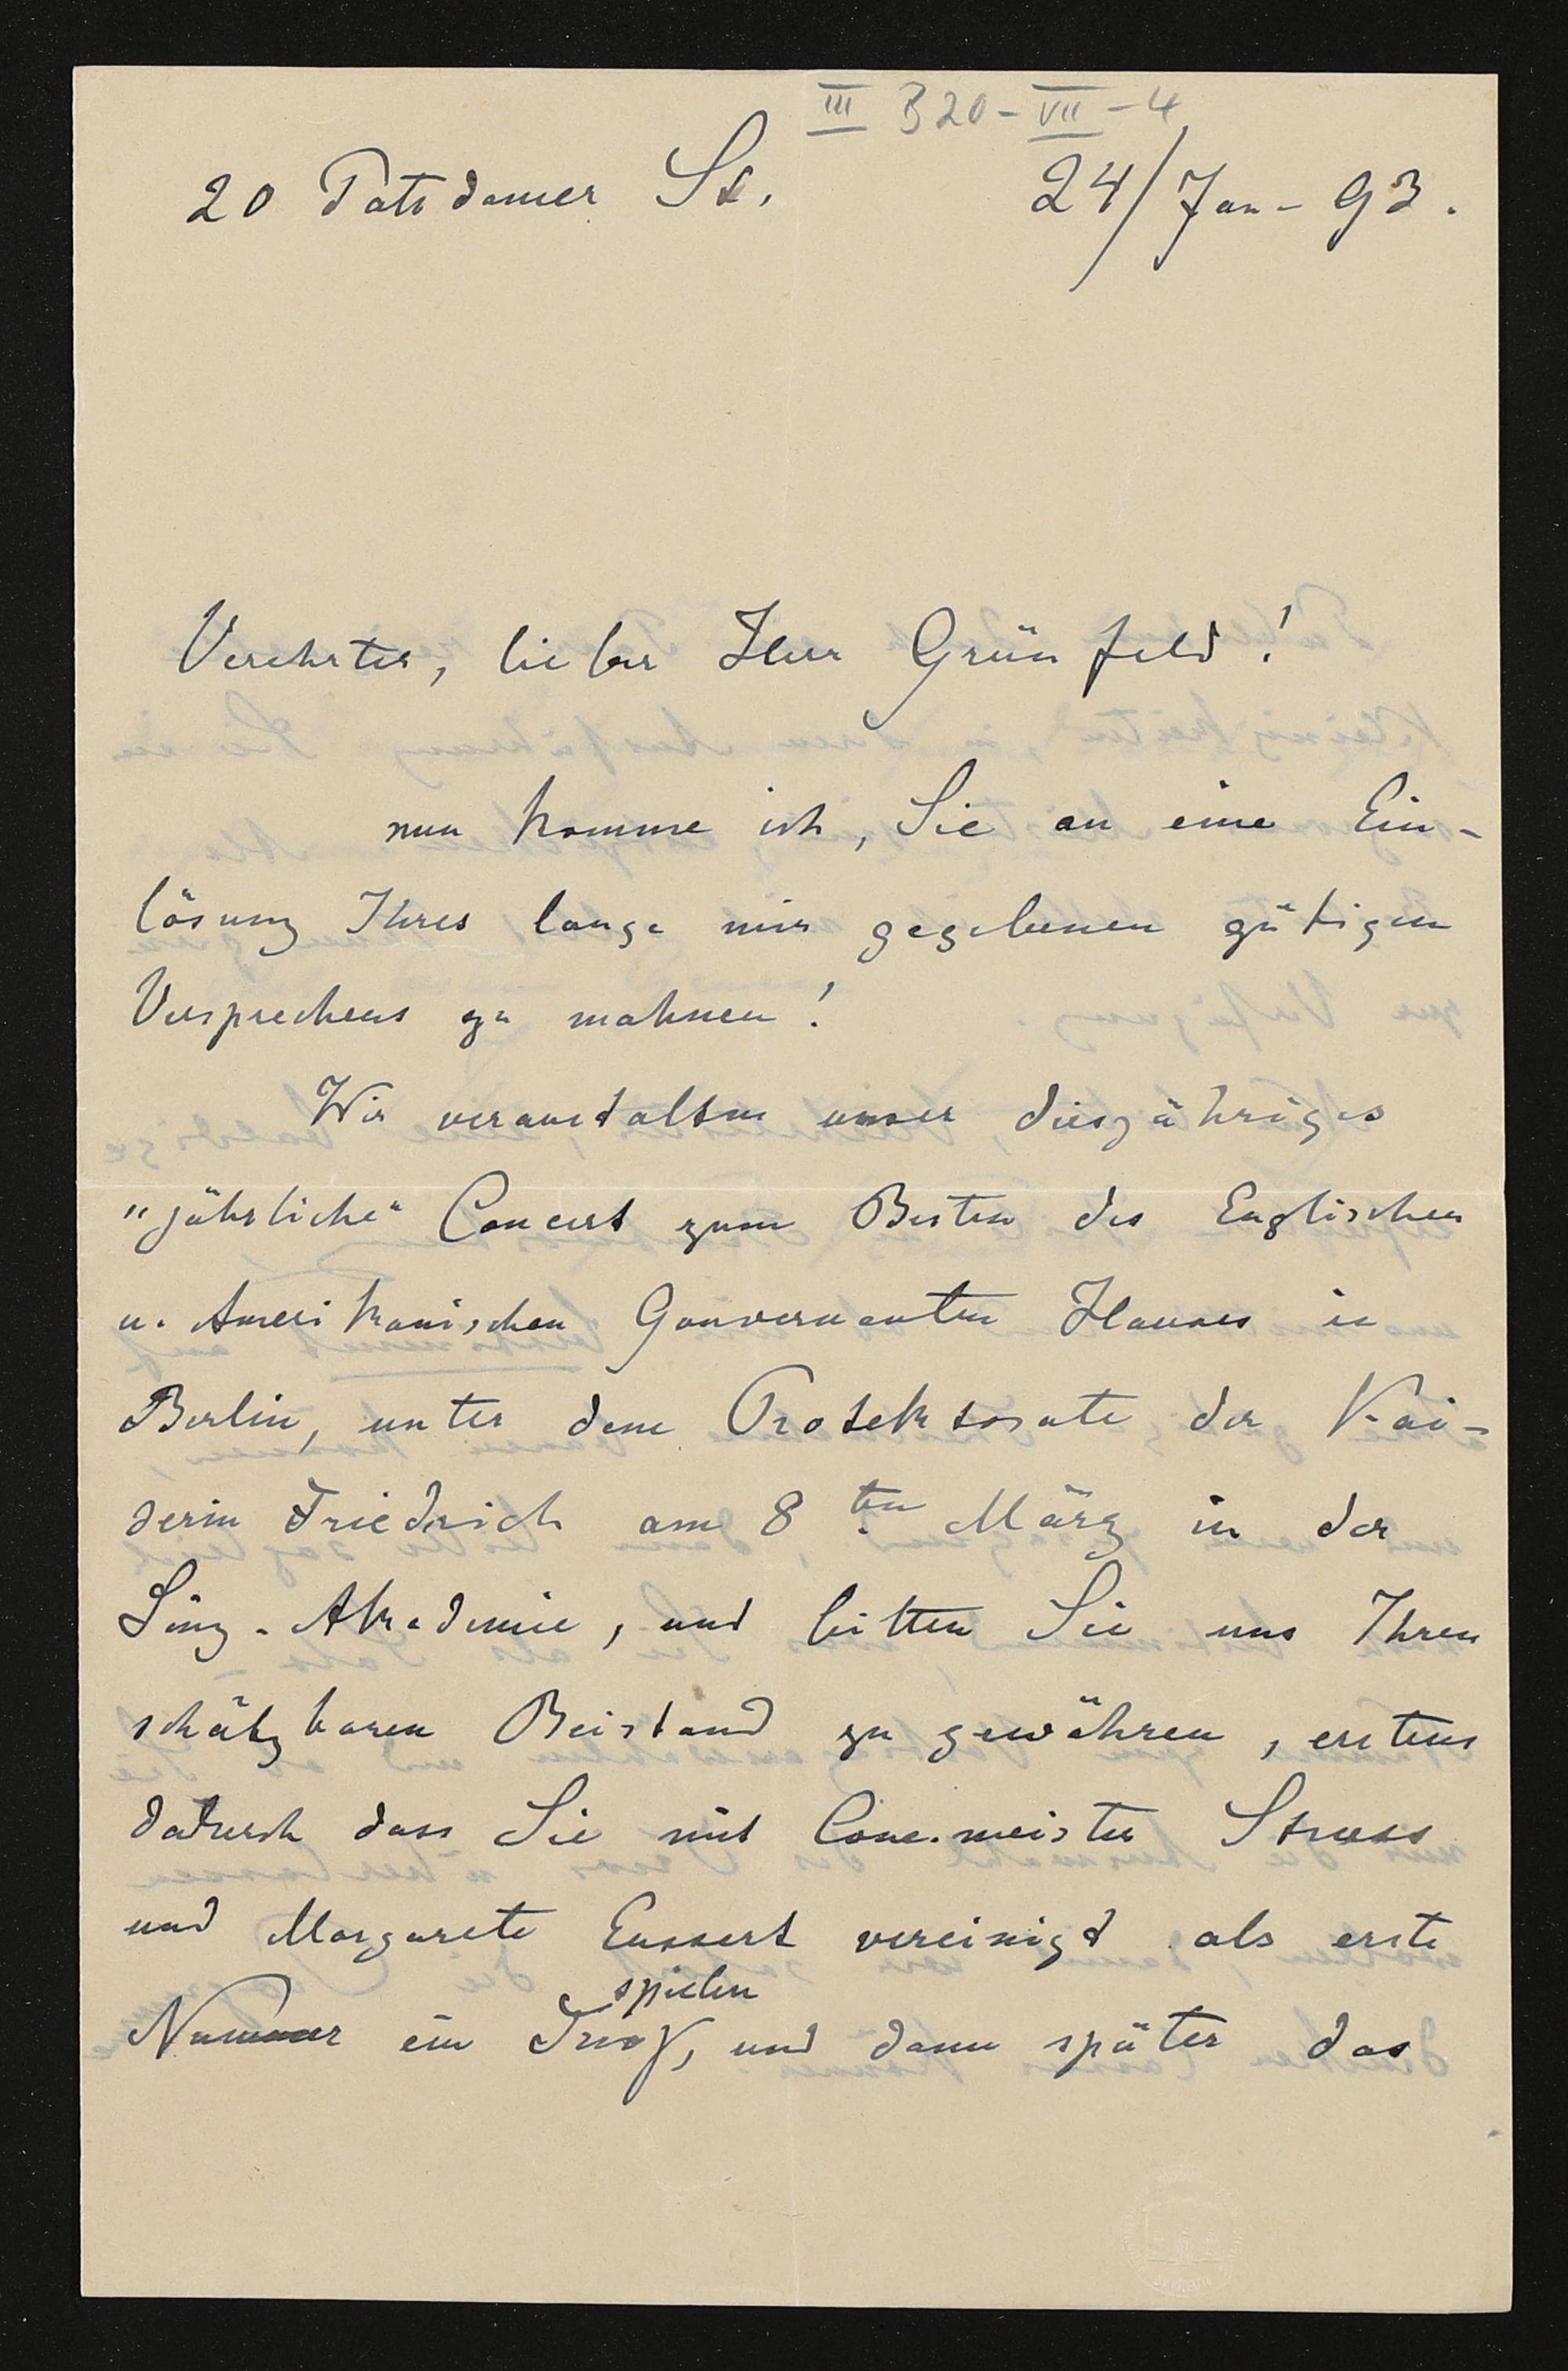 III B20-VII-4
20 Potsdamer St. 24/Jan-93.
Verehrter, lieber Herr Grünfeld!
nun komme ich, Sie an eine Ein-
lösung Ihres lange mir gegebenen gütigen
Versprechens zu mahnen!
Wir veranstalten unser diesjähriges
"jährliche" Concert zum Besten des Englischen
u. Amerikanischen Gouvernanten Hauses in
Berlin, unter dem Protektorate der Kai-
serin Friedrich am 8ten März in der
Sing-Akademie, und bitten Sie uns Ihren
schätzbaren Beistand zu gewähren, erstens
dadurch dass Sie mit Conc.meister Struss
und Margarete Eussert vereinigt als erste
Nummer ein Trio spielen, und dann später das